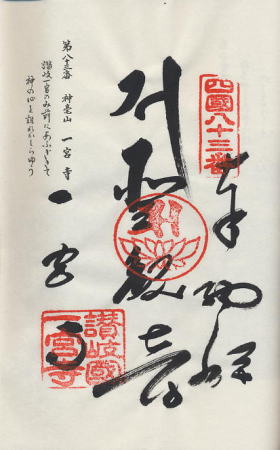 四國八十三番
奉納経
聖観音
一宮寺
讃岐國
一宮寺
第八十三番 神毫山 一宮寺
讃岐一宮のみ前にあふぎきて
神の心を誰かしらゆう